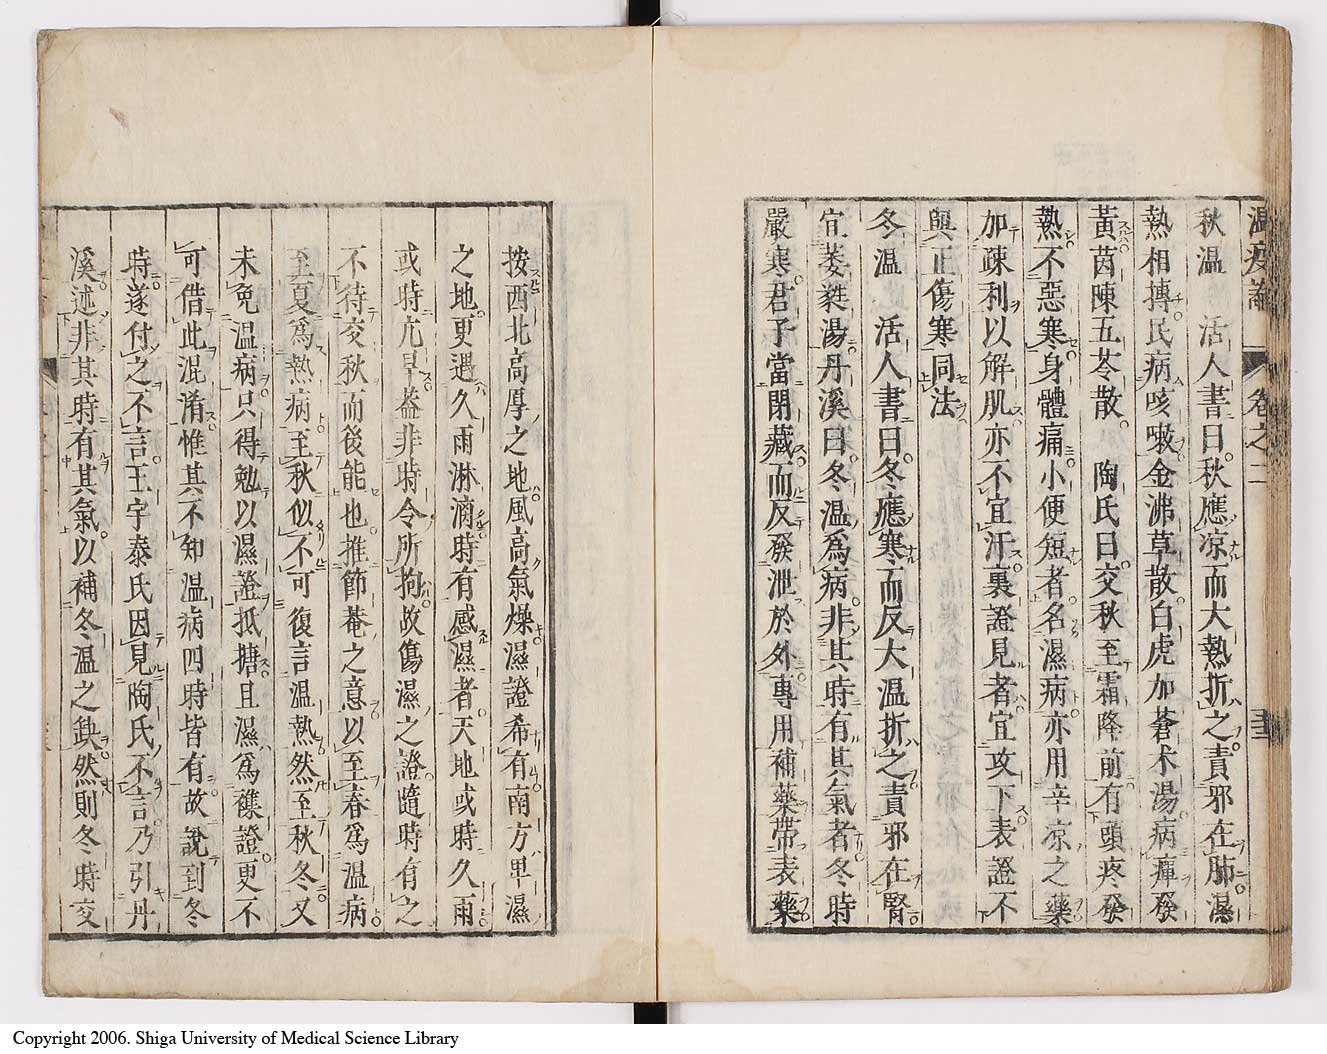 溫疫論 卷之二
秋温 活人書曰秋應凉而大熱折之責邪在肺濕
熱相摶民病咳嗽金沸草散白虎加蒼术湯病疸發
黃茵蔯五苓散 陶氏曰交秋至霜降前有頭疼發
熱不惡寒身體痛小便短者名濕病亦用辛凉之藥
加疎利以解肌亦不宜汗裏證見者宜攻下表證不
與正傷寒同法
冬温 活人書曰冬應寒而反大温折之責邪在腎
宜葳蕤湯丹溪曰冬温爲病非其時有其氣者冬時
嚴寒君子當閉藏而反發泄於外專用補藥帶表藥
按西北高厚之地風高氣燥濕證希有南方卑濕
之地更遇久雨淋漓時有感濕者天地或時久雨
或時亢旱蓋非時令所拘故傷濕之證隨時有之
不待交秋而後能也推節菴之意以至春爲温病
至夏爲熱病至秋似不可復言温熱然至秋冬又
未免温病只得勉以濕證抵搪且濕爲襍證更不
可借此混淆惟其不知温病四時皆有故說到冬
時遂付之不言王宇泰氏因見陶氏不言乃引丹
溪述非其時有其氣以補冬温之缺然則冬時交
Copyright 2006. Shiga University of Medical Science Library